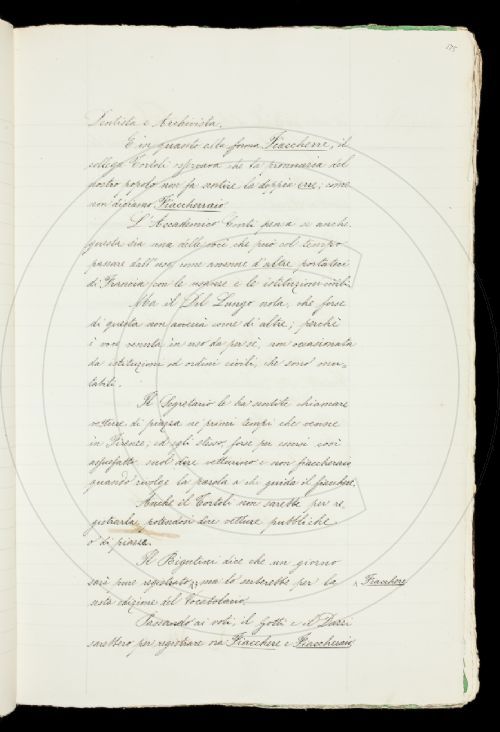 175
Dentista e Archivista.
E in quanto alla forma Fiaccherre, il
collega Tortoli osservava che la pronunzia del
nostro popolo non fa sentire la doppia erre; come
non diciamo Fiaccherraio
L'Accademico Conti pensa se anche
questa sia una delle voci che può col tempo
passare dall'uso, come avvenne d'altre portateci
di Francia con le usanze e le istituzioni civili.
Ma il Del Lungo nota, che forse
di questa non avverrà come di altre; perchè
è voce venuta in uso da per sè, non occasionata
da istituzioni od ordini civili, che sono mu-
tabili.
Il Segretario le ha sentite chiamare
vetture di piazza ne' primi tempi che venne
in Firenze; ed egli stesso, forse per essersi così
assuefatto suol dire vetturino e non fiaccheraio
quando rivolge la parola a chi guida il fiacchere.
Anche il Tortoli non sarebbe per re
gistrarla, potendosi dire vetture pubbliche
o di piazza.
Il Bigutini dice che un giorno
sarà pure registrato; ma lo serberebbe per la
Fiacchere
sesta edizione del Vocabolario.
Passando ai voti, il Gotti e il Dazzi
sarebbero per registrare ora Fiacchere e Fiaccheraio,